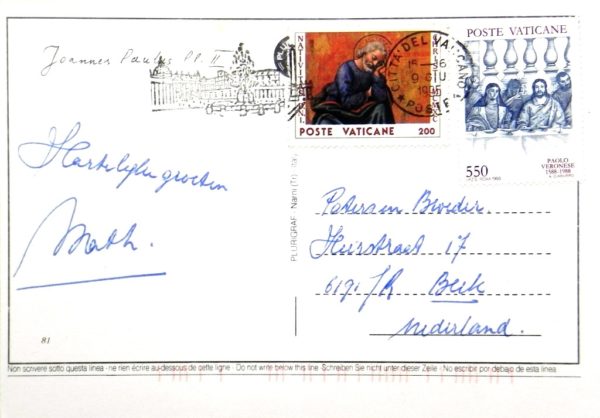 Joannes Paulus PP. II
NATIVITA
POSTE VATICANE 200
CITTÀ DEL VATICANO
15-16
9 GIU
1995
POSTE
POSTE VATICANE
550
PAOLO
VERONESE
1588-1988
Hartelijke groeten
Math.
PLURIGRAF - Narni (Tr) - Ita
Peters en Broeder
Heirstraat 17
6191 JR Beek
Nederland.
81
Non scrivere sotto questa linea - ne rien écrire au-dessous de cette ligne - Do not write below this line - Schreiben Sie nicht unter dieser Zeile - No escribir por debajo de esta linea